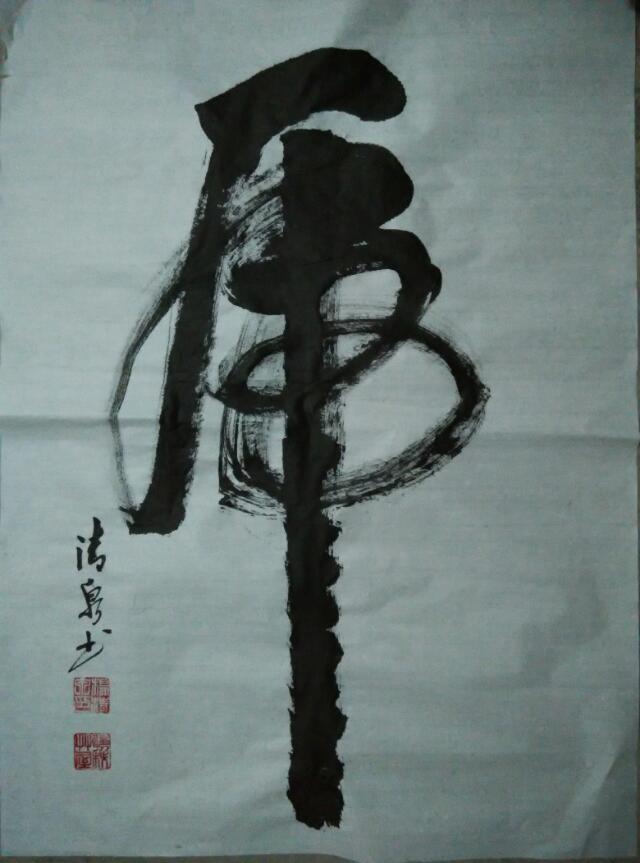 虎
清泉书